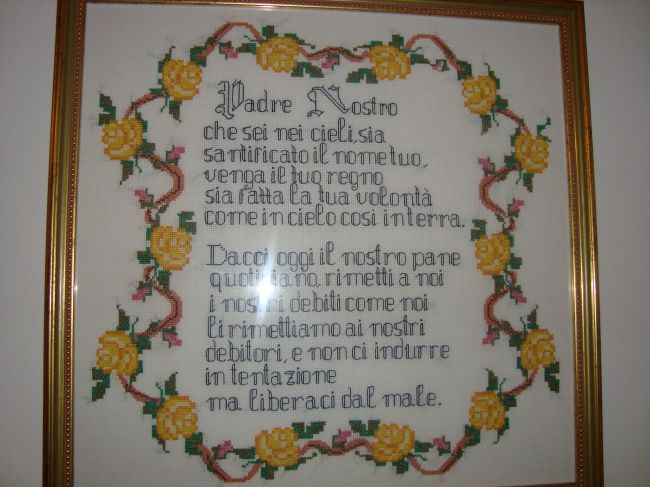 Padre Nostro
che sei nei cieli, sia
santificato il nome tuo,
venga il tuo regno
sia fatta la tua volontà
come in cielo così in terra.
Dacci oggi il nostro pane
quotidiano, rimetti a noi
i nostri debiti come noi
li rimettiamo ai nostri
debitori, e non ci indurre
in tentazione
ma liberaci dal male.